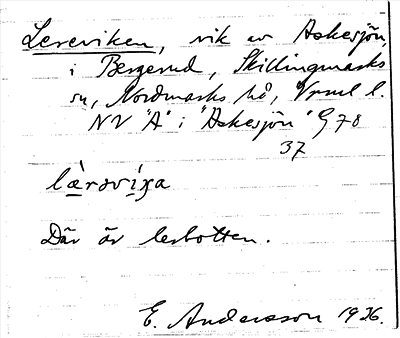 Lereviken, vik av Askesjön,
i Bergerud, Skillingmarks
sn, Nordmarks hd, Vrml l.
NV "A" i "Askesjön" G 78
37
lærəviɟa
Där är lerbotten.
E. Andersson 1926.